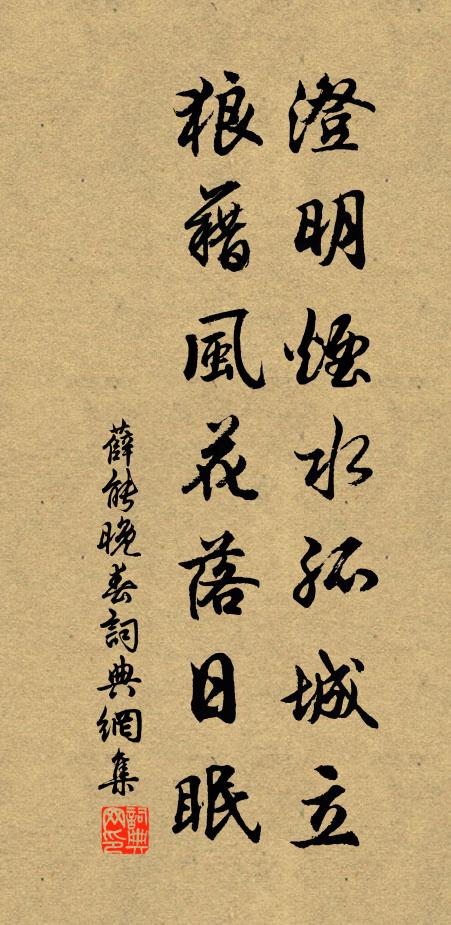 澄明煙水孤城立
狼藉風花落日眠
薛能晚春詞典網集
詞典網印